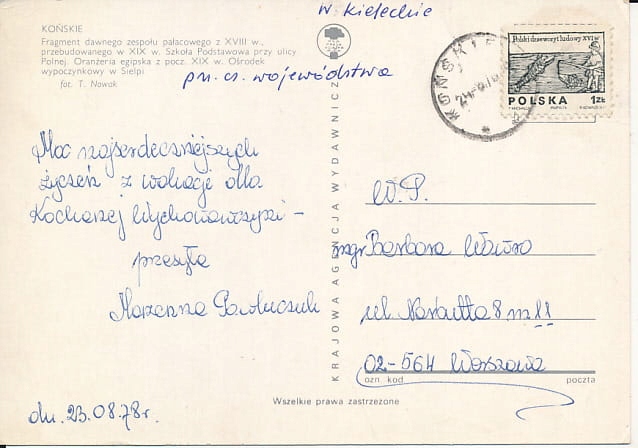 w. kieleckie
pn. cs. województwa
KOŃSKIE
Fragment dawnego zespołu pałacowego z XVIII w.,
przebudowanego w XIX w. Szkoła Podstawowa przy ulicy
Polnej. Oranżeria egipska z pocz. XIX w. Ośrodek
wypoczynkowy w Sielpi
fot. T. Nowak
Moc najserdeczniejszych
życzeń z wakacji dla
Kochanej Wychowawczyni –
przesyła
Marzenna Pawluczuk
dn. 23.08.78r.
KRAJOWA AGENCJA WYDAWNICZA
KOŃSKIE
Polski drzeworyt ludowy XVI w.
POLSKA 1 ZŁ
W.P.
mgr Barbara Wawro
ul. 8 m 11
02-564 Warszawa
ozn. kod poczta
Wszelkie prawa zastrzeżone